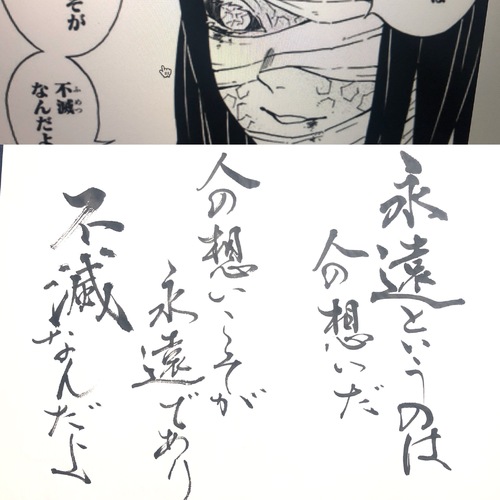 は
そが
不滅
ふめつ
なんだよ
永遠というのは
人の想いだ
人の想いこそが
永遠であり
不滅なんだよ